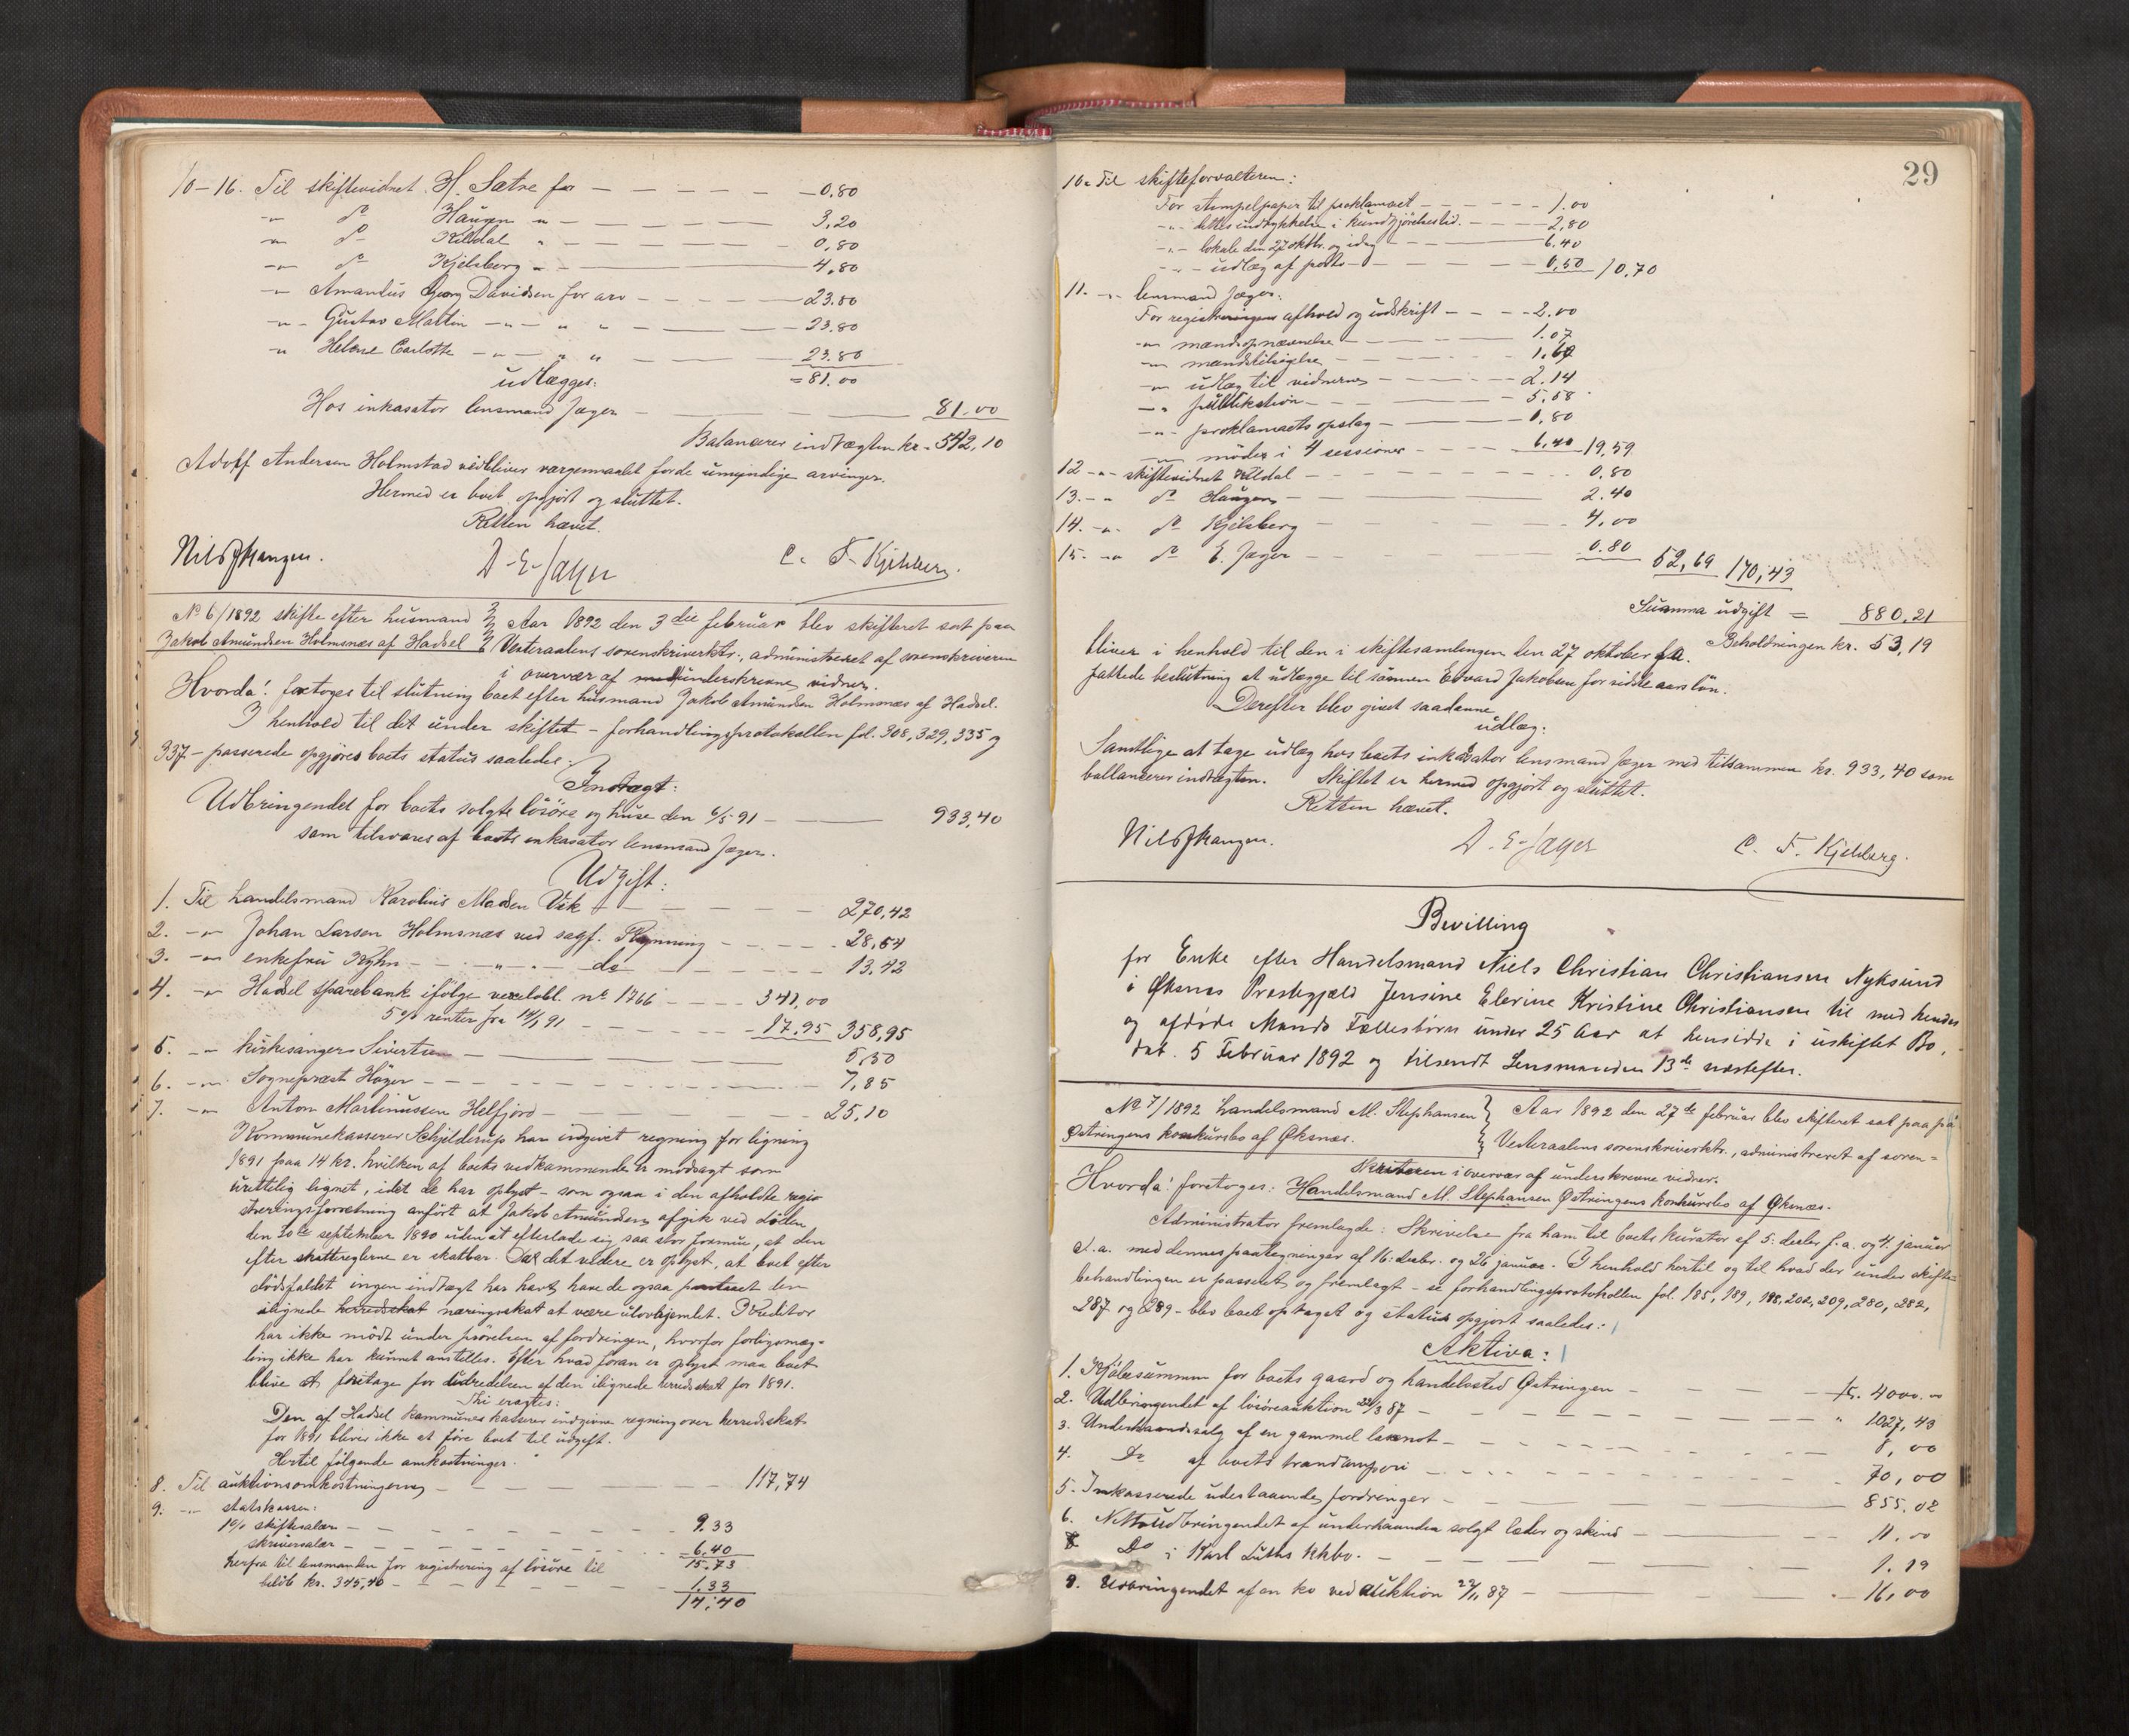 10-16. Til skiftevidnet H. Sætre for - - - - - 0.80
-"- do Haugen " - - - - 3,20
-"- do Kildal " - - - - 0,80
-"- do Kjelsberg " - - - - 4,80
-"- Amandus Georg Davidsen for arv - - - - 23.80
-"- Gustav Martin -"- " " - - - 23.80
-"- Helene Carlotte -"- " " - - - 23.80
udlægges: = 81.00
Hos inkasator lensmand Jæger - 81.00
Balancerer indtægten kr. 542,10
Adolf Andersen Holmstad vedbliver værgemaalet for de umyndige arvinger.
Hermed er boet opgjort og sluttet.
Retten hævet.
Nils J Haugen. D. E. Jæger C. F. Kjelsberg.
No 6/1892 skifte efter husmand
Jakob Amundsen Holmsnæs af Hadsel
Aar 1892 den 3die februar blev skifteret sat paa
Vesteraalens sorenskriverktr., administreret af sorenskriveren
i overvær af underskrevne vidner.
Hvorda! foretoges til slutning boet efter husmand Jakob Amundsen Holmsnæs af Hadsel.
I henhold til det under skiftet - forhandlingsprotokollen fol. 308, 329, 335 og
337 - passerede opgjøres boets status saaledes:
Indtægt:
Udbringendet for boets solgte løsøre og huse den 6/5 91 - 933,40
som tilsvares af boets inkasator lensmand Jæger.
Udgift:
1. Til handelsmand Karolius Madsen Vik - - - - 270,42
2. -"- Johan Larsen Holmsnæs ved sagf. Rynning - - - - 28,54
3. -"- enkefru Kyhn - - " - do - - - - 13.42
4. -"- Hadsel sparebank ifølge vexelobl. no 1766 - - - - 341,00
5 % renter fra 14/1 91 - - - - 17.95 358,95
5. -"- kirkesanger Sivertsen - 5,50
6. -"- Sogneprest Høyer - - - - 7,85
7. -"- Anton Martinussen Helfjord - - - - 25,10
Kommunekasserer Schjelderup har indgivet regning for ligning
1891 paa 14 kr. hvilken af boets vedkommende er modsagt som
urettelig lignet, idet de har oplyst - som ogsaa i den afholdte regi-
streringsforretning anført at Jakob Amundsen afgik ved døden
den 30te september 1890 uden at efterlade sig saa stor formue, at den
efter skattereglerne er skatbar. Da det videre er oplyst, at boet efter
dødsfaldet ingen indtægt har havt, have de ogsaa paastaaet den
ilignede herredsskat næringsskat at være ulovhjemlet. Kreditor
har ikke mødt under prøvelsen af fordringen, hvorfor forligsmæg-
ling ikke har kunnet anstilles. Efter hvad foran er oplyst maa boet
blive at fritage for udredelsen af den ilignede herredsskat for 1891.
Thi eragtes:
Den af Hadsel kommunekasserer indgivne regning over herredsskat
for 1891 bliver ikke at føre boet til udgift.
Hertil følgende omkostninger:
8. Til auktionsomkostningerne - - - - 117,74
9. -"- statskassen:
1 % skiftesalær - - - - 9.33
skriversalær - - - - 6,40
15.73
herfra til lensmanden for registrering af løsøre til
beløb kr. 345,40 - - - - 1.33
14,40
29
10. Til skifteforvalteren:
For stempelpapir til proklamaet - - - - 1.00
-"- dettes indrykkelse i Kundgjørelsestid. - - - 2,80
-"- lokale den 27 oktbr. og idag - - - 6.40
-"- udlæg af porto - - - - 0,50 10,70
11. -"- lensmand Jæger:
For registreringens afhold og udskrift - - - 2.00
-"- mandsopnævnelse - - - 1.07
-"- mandstilsigelse - - - 1.60
-"- udlæg til vidnerne - - - 2.14
-"- publikation - - - 5,58
-"- proklamaets opslag - - 0,80
-"- møder i 4 sessioner - - - 6,40 19,59
12 -"- skiftevidnet Kildal - - - - 0.80
13. -"- do Haugen - 2.40
14. -"- do Kjelsberg - - - 4,00
15. -"- do E. Jæger - - - 0.80 52,69 170,43
Summa udgift = 880,21
Beholdningen kr. 53,19
bliver i henhold til den i skiftesamlingen den 27 oktober f.a.
fattede beslutning at udlægge til sønnen Edvard Jakobsen for sidste aars løn.
Derefter blev givet saadanne
udlæg:
Samtlige at tage udlæg hos boets inkasator lensmand Jæger med tilsammen kr. 933,40 som
ballancerer indtægten. Skiftet er hermed opgjort og sluttet.
Retten hævet.
Nils J Haugen. D. E. Jæger C. F. Kjelsberg.
Bevilling
for Enke efter Handelsmand Niels Christian Christiansen Nyksund
i Øksnes Præstegjæld Jensine Elerine Kristine Christiansen til med hendes
og afdøde Mands Fællesbørn under 25 Aar at hensidde i uskiftet Bo,
dat. 5 Februar 1892 og tilsendt Lensmanden 13de næstefter.
No 7/1892 handelsmand M. Stephansen
Østringens konkursbo af Øksnæs.
Aar 1892 den 27de februar blev skifteret sat paa på
Vesteraalens sorenskriverktr., administreret af soren-
skriveren i overvær af underskrevne vidner.
Hvorda! foretoges: Handelsmand M. Stephansen Østringens konkursbo af Øksnæs.
Administrator fremlagde: Skrivelse fra ham til boets kurator af 5. decbr f.a. og 4. januar
d.a. med dennes paategninger af 16. decbr. og 26 januar. I henhold hertil og til hvad der under skifte-
behandlingen er passeret og fremlagt - se forhandlingsprotokollen fol. 185, 189, 198, 202, 209, 280, 282,
287 og 289 - blev boet optaget og status opgjort saaledes:
Aktiva:
1. Kjøbesummen for boets gaard og handelssted Østringen - - - - kr. 4000. "
2. Udbringendet af løsøreauktion 22/3 87 - - - - " 1027,43
3. Underhaandssalg af en gammel laxenot - - - - 8,00
4. Do af boets trandamperi - - - - 70,00
5. Inkasserede udestaaende fordringer - 855.02
6. Nettoudbringendet af underhaanden solgt læder og skind - - - 11.00
Do i Karl Luths kkbo. - - - - 1.19
8. Udbringendet af en ko ved auktion 22/11 87 - - - 16,00